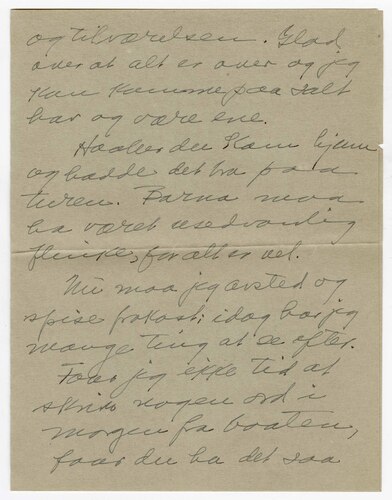 og tilværelsen. Glad
over at alt er over og jeg
kan komme paa salt
hav og være ene.
Haaber du kom hjem
og hadde det bra paa
turen. Barna maa
ha været usedvanlig
flinke, for alt er vel.
Nu maa jeg avsted og
spise frokost; idag har jeg
mange ting at se efter.
Faar jeg ikke tid at
skrive nogen ord i
morgen fra baaten,
faar du ha det saa